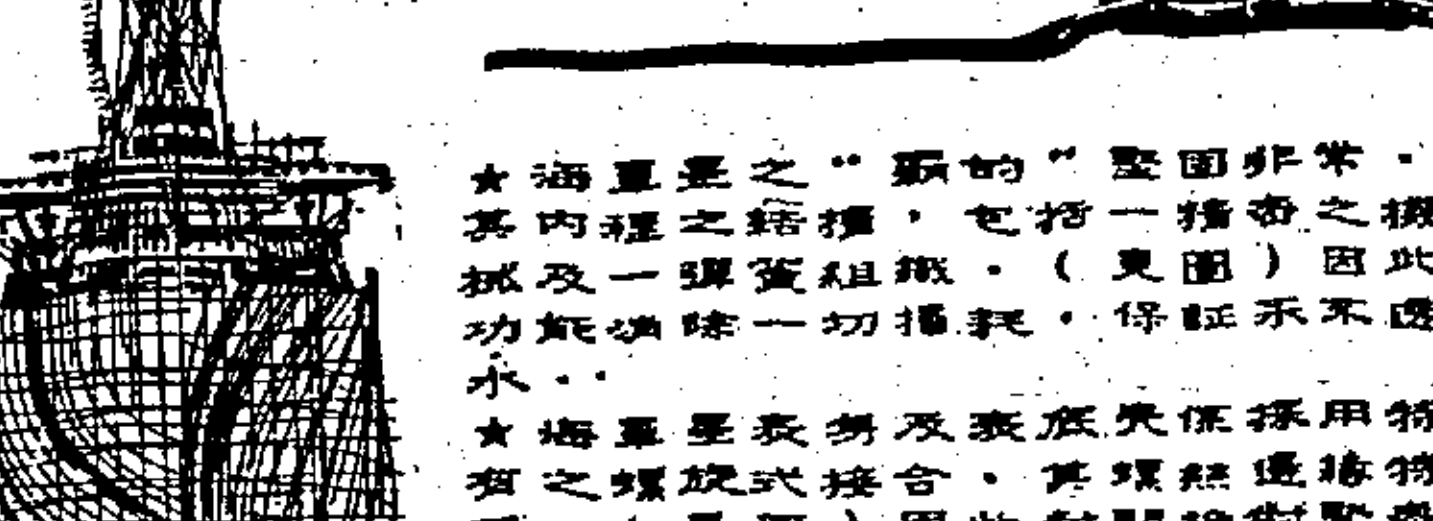 ★海軍星之“霸的”堅固非常，
其內裡之結構，包括一精密之機
械及一彈簧組織。(見圖)因此
功能消除一切損耗，保証永不透
水。
★海軍星表壳及表底壳係採用特
有之螺旋式接合，其螺絲邊緣特